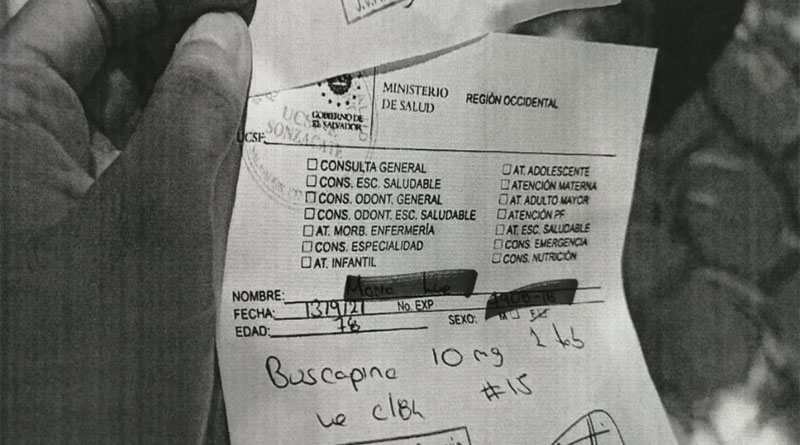 MINISTERIO
DE SALUD
REGIÓN OCCIDENTAL
GOBIERNO DE
EL SALVADOR
SONZACATE
UCSF:
☐ CONSULTA GENERAL
☐ CONS. ESC. SALUDABLE
☐ CONS. ODONT. GENERAL
☐ CONS. ODONT. ESC. SALUDABLE
☐ AT. MORB. ENFERMERÍA
☐ CONS. ESPECIALIDAD
☐ AT. INFANTIL
☐ AT. ADOLESCENTE
☐ ATENCIÓN MATERNA
☐ AT. ADULTO MAYOR
☐ ATENCIÓN PF
☐ AT. ESC. SALUDABLE
☐ CONS. EMERGENCIA
☐ CONS. NUTRICIÓN
NOMBRE:
FECHA: 13/9/21 No. EXP
EDAD: 78 SEXO: M F
Buscapina 10 mg 1 tab
c/8h #15